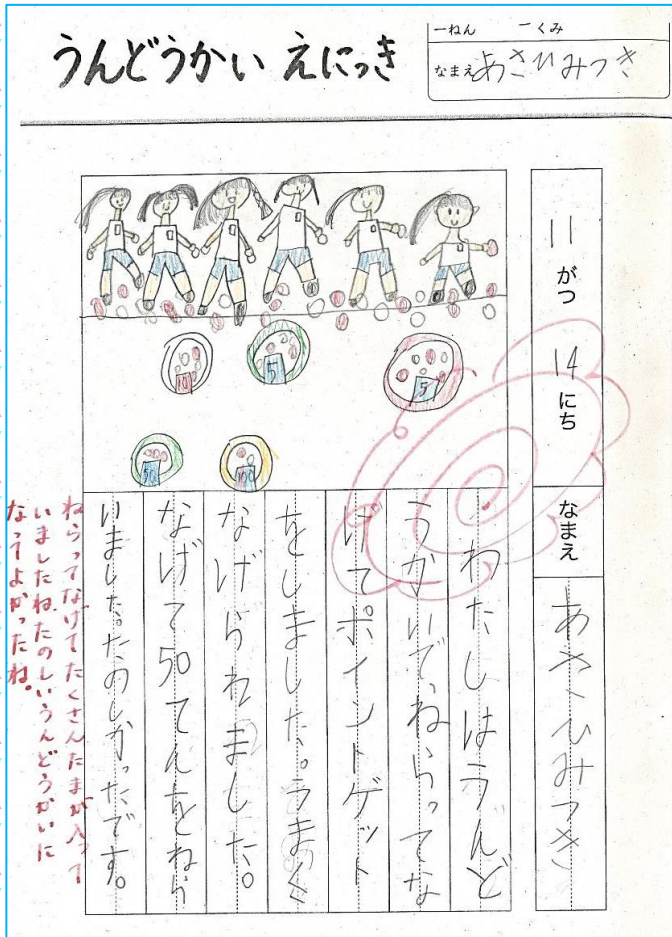 うんどうかい えにっき
一ねん 一くみ
なまえ あさひみつき
11がつ14にち なまえ あさひみつき
わたしはうんど
うかいでねらってな
げてポイントゲット
をしました。うまく
なげられました。
なげて50てんをねら
いました。たのしかったです。
ねらってなげてたくさんたまが入って
いましたね。たのしいうんどうかいに
なってよかったね。
10
5
5
50
100